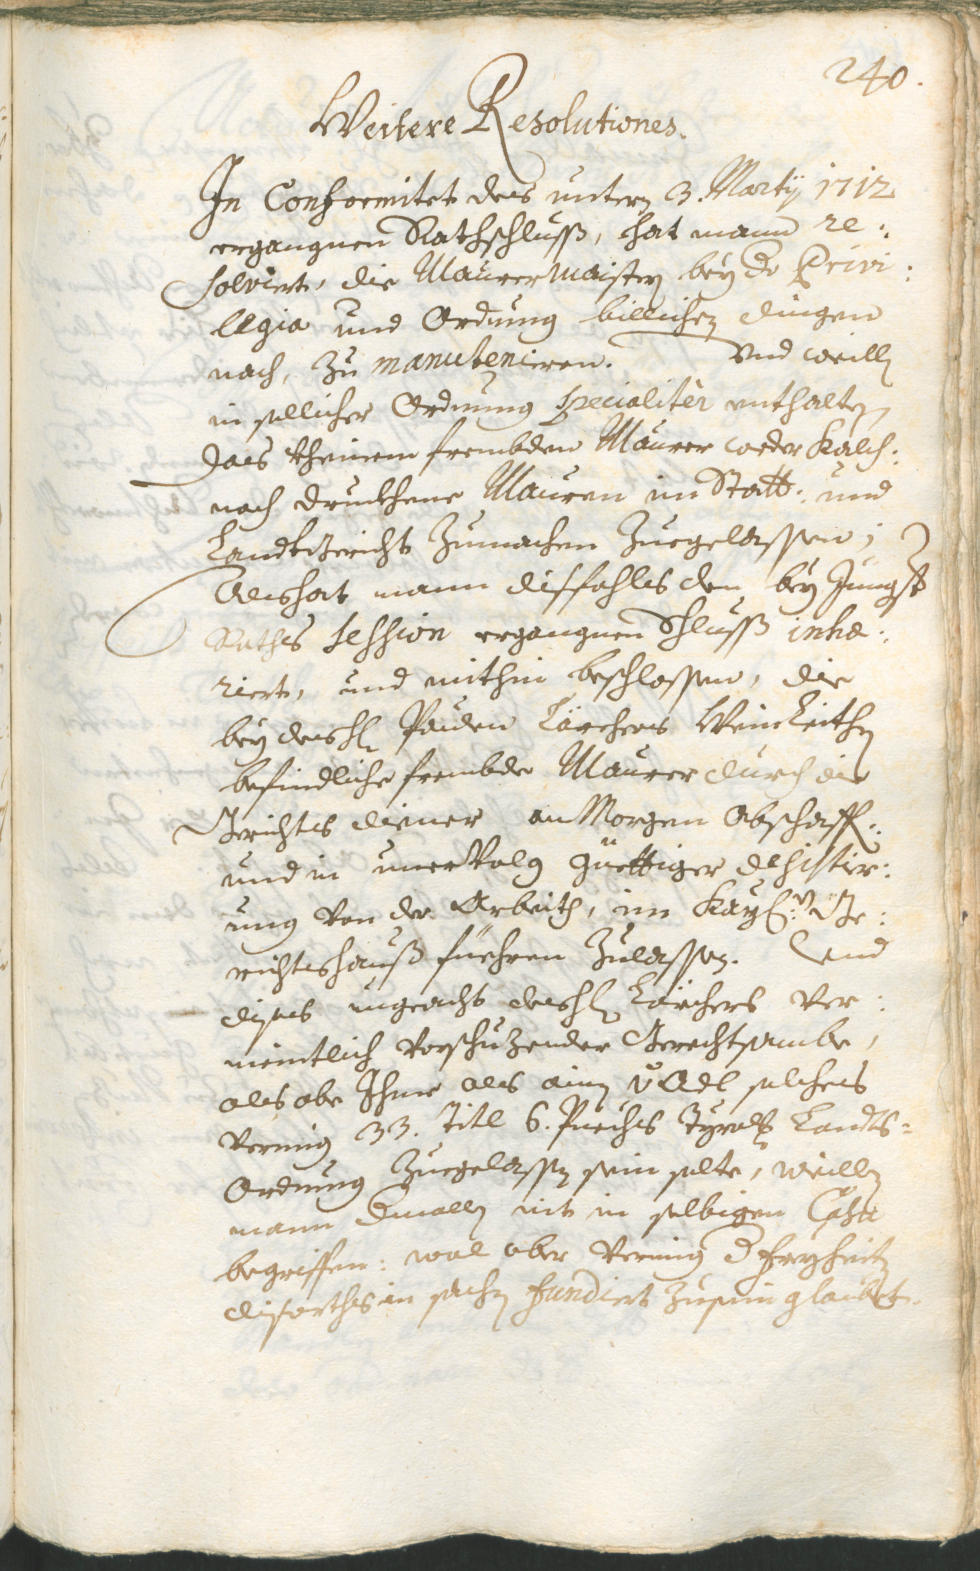 240.
Weitere Resolutiones.
In Conformitet des untern 3. Martij 1712
ergangnen Rathschluss, hat mann re:
solviert, die Maurer Maister bey de Privi:
llegia und Ordnung billichen dingen
nach, zu manuteniren. Und weilln
in sollicher Ordnung specialiter enthalten,
dass kheinem frembden Maurer weder Kalch:
noch druckhene Mauren im Statt: und
Landtgericht zumachen zuegelassen;
Alss hat mann dissfahls den bey Jüngst
Raths Session ergangnen Schluss inhæ:
riert, und mithin beschlossen, die
bey dess H: Pauden Lärchers Weinleithen
befindliche frembde Maurer durch die
Gerichts diener an Morgen Abschaff:
und in unervolg güettiger desistier:
ung von der Arbeith, im Kayl: Ge:
richtshauss füehren zulassen. Und
dises ungeacht dess H: Lärchers ver:
meintlich vorschuzender Gerechtsambe,
als obe Ihme als ainen v: Adl solches
vermig 33. Titl 6. Puechs Tyrol: Landts=
Ordnung zuegelassen sein solte, weilln
mann in selbigen Cahsu
begriffen: wol aber vermig d Freyheit
disorths in sachen fundiert zusein glaubet.